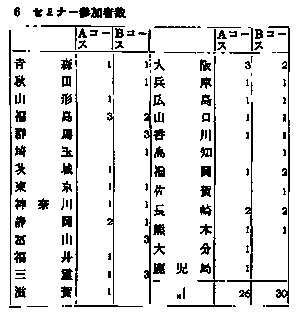 6 セミナー参加者数
Aコース Bコース Aコース Bコース
青森 1 1 大阪 3 2
秋田 1 兵庫 1 1
山形 1 1 広島 1 1
福島 3 2 山口 1 1
群馬 3 香川 1 1
埼玉 1 高知 1
茨城 1 福岡 1 2
東京 1 1 佐賀 1
神奈川 1 1 長崎 2 2
静岡 2 1 熊本 1 1
富山 3 大分 1
福井 1 鹿児島 1
三重 1 3 計 26 30
滋賀 1